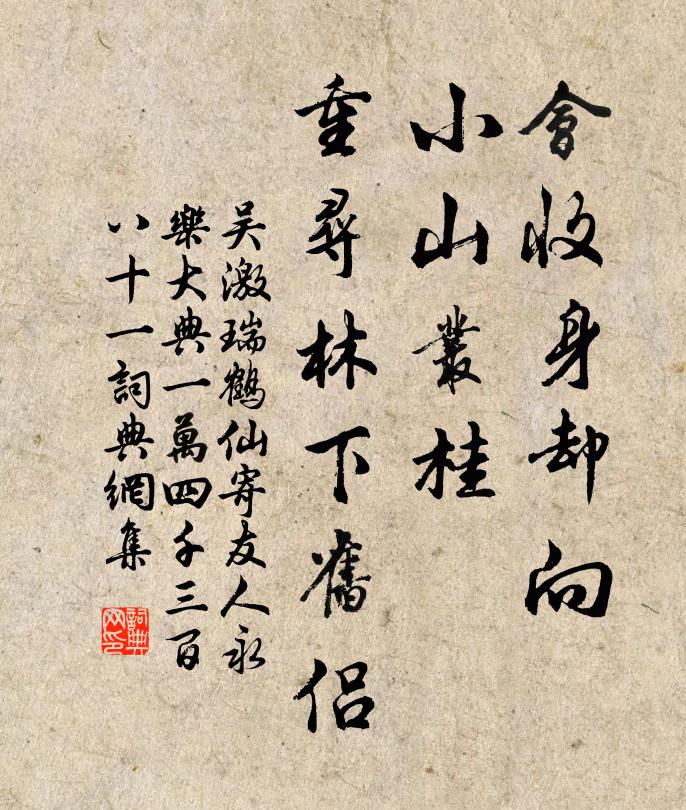 會收身却向
小山叢桂
重尋林下舊侶
吴激瑞鶴仙寄友人永
樂大典一萬四千三百
八十一詞典網集
詞典
网印